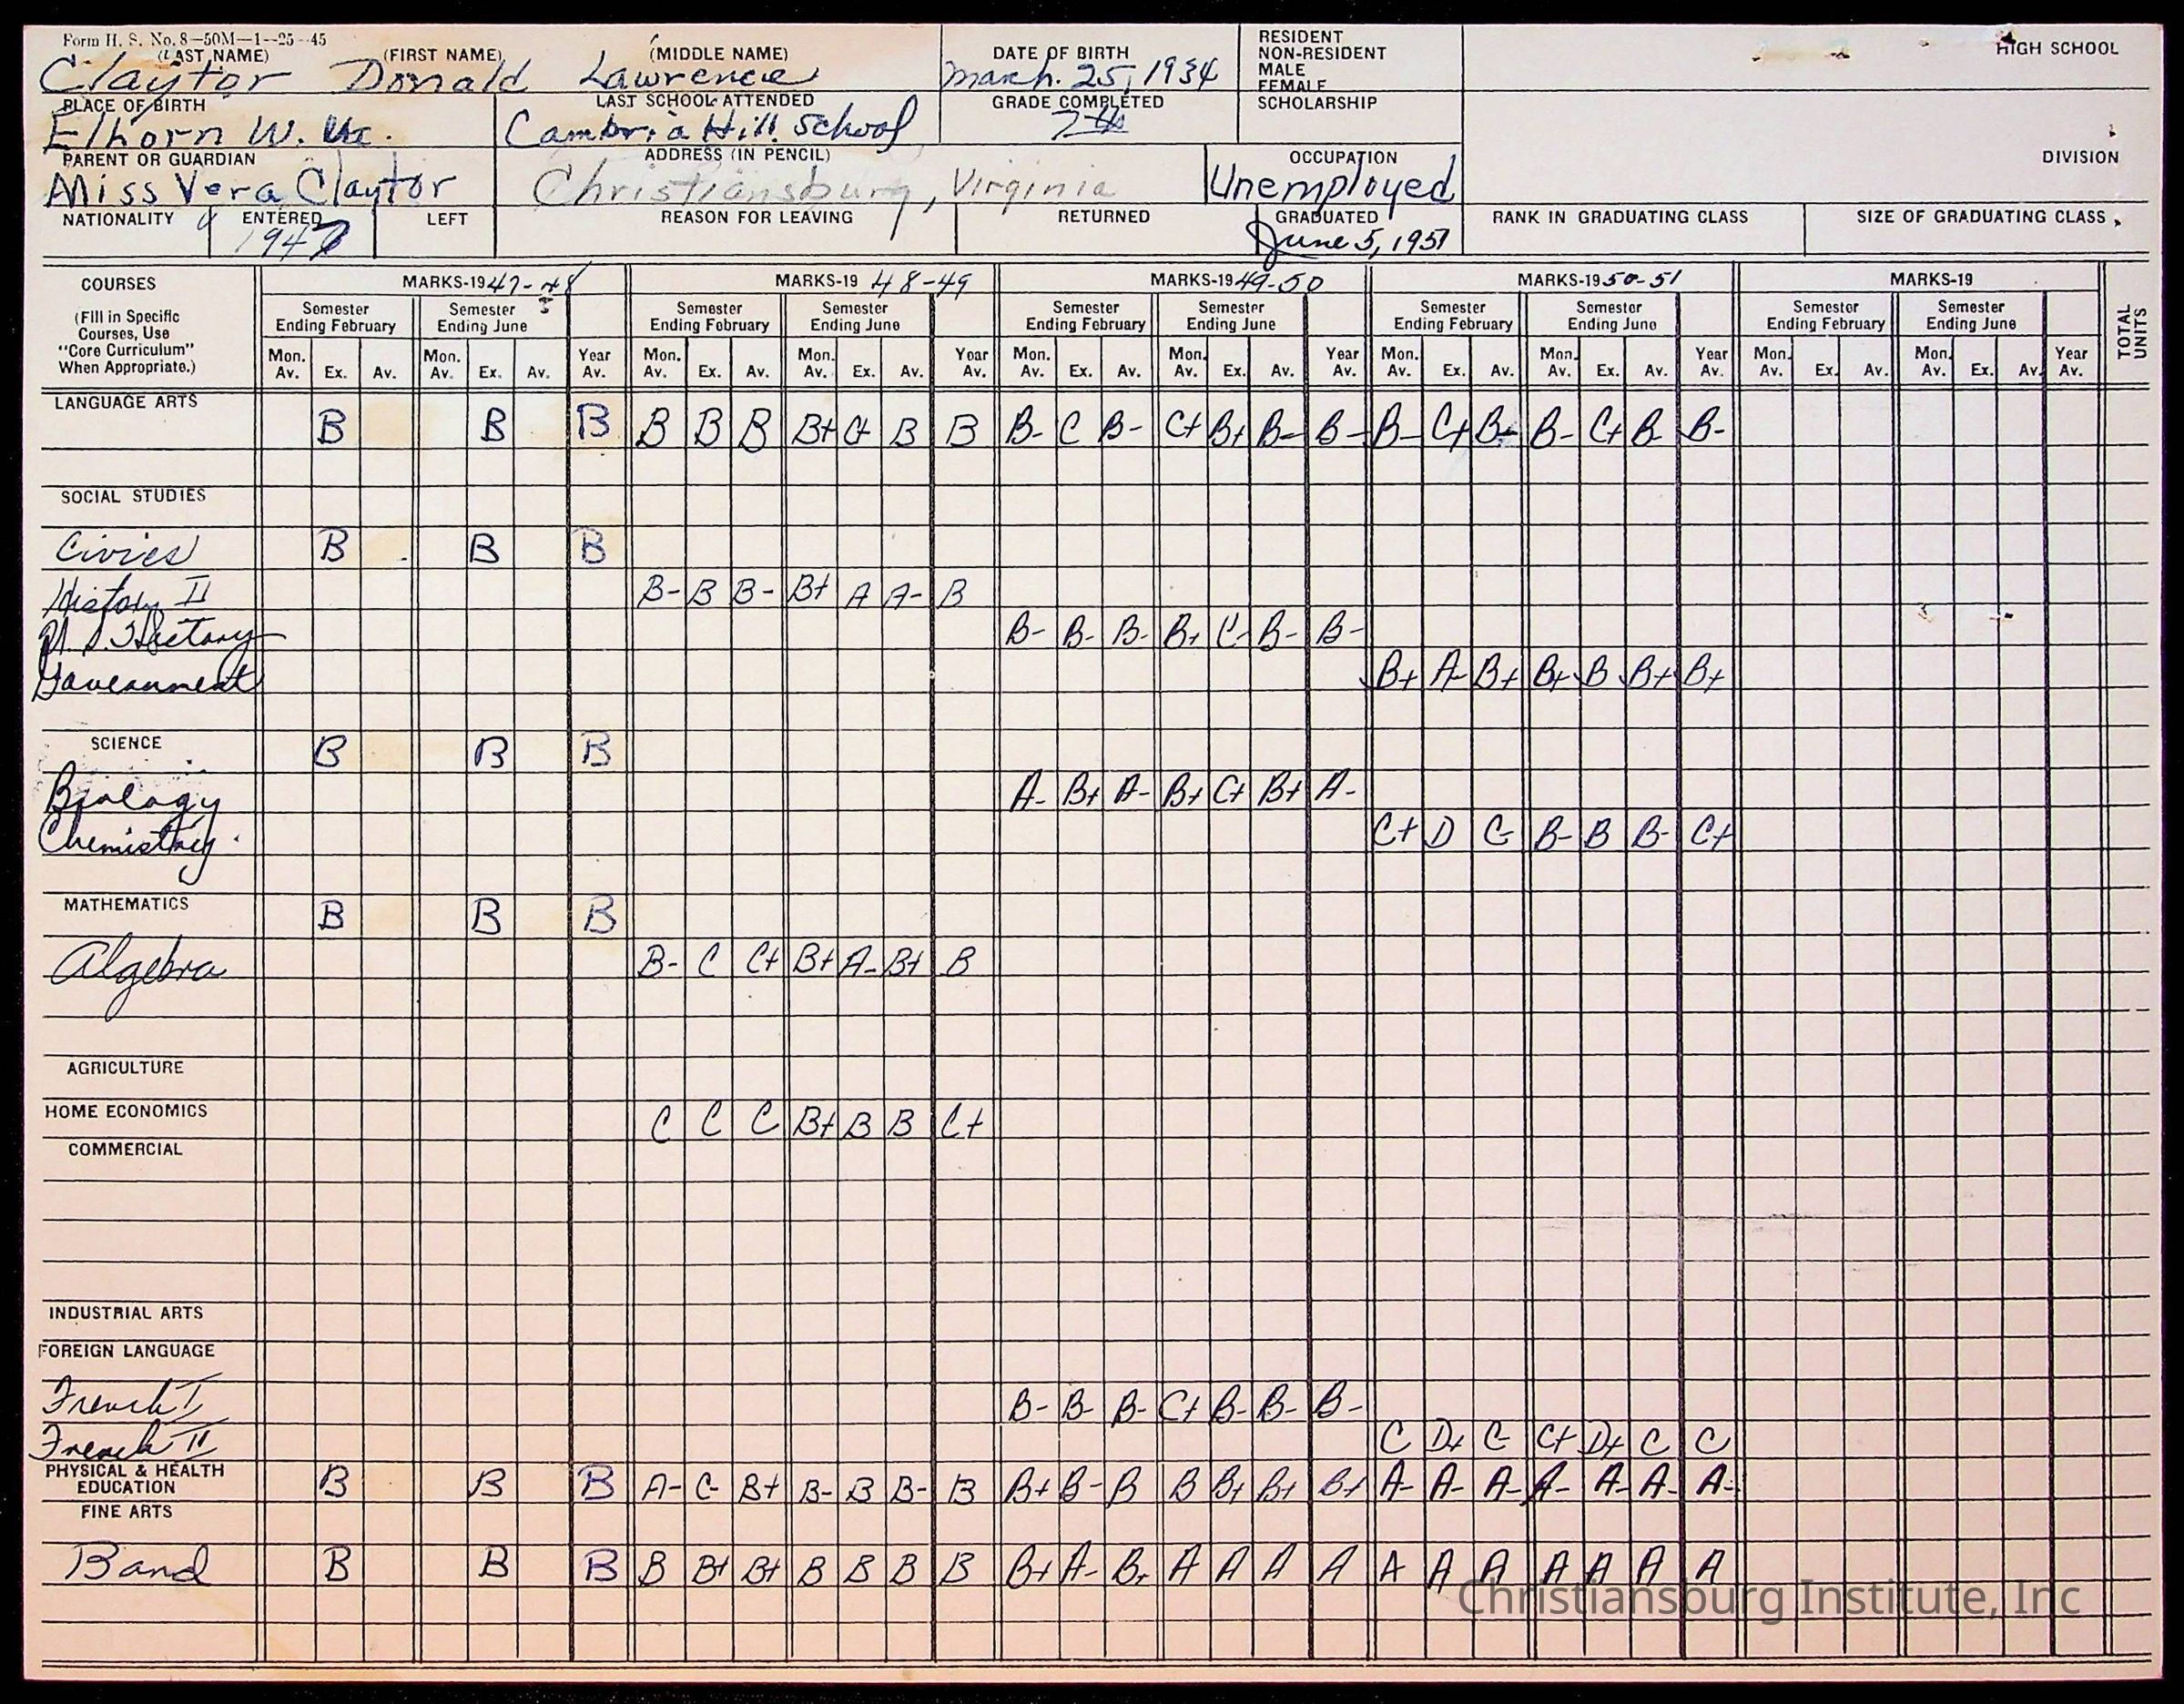 Form H. S. No. 8—50M—1--25--45
(LAST NAME) (FIRST NAME) (MIDDLE NAME) DATE OF BIRTH RESIDENT HIGH SCHOOL
NON-RESIDENT
MALE
FEMALE
Claytor Donald Lawrence March. 25, 1934
PLACE OF BIRTH LAST SCHOOL ATTENDED GRADE COMPLETED SCHOLARSHIP
Elhorn W. Va. Cambria Hill School 7th
PARENT OR GUARDIAN ADDRESS (IN PENCIL) OCCUPATION DIVISION
Miss Vera Claytor Christiansburg, Virginia Unemployed
NATIONALITY ENTERED LEFT REASON FOR LEAVING RETURNED GRADUATED RANK IN GRADUATING CLASS SIZE OF GRADUATING CLASS
1947 June 5, 1951
COURSES MARKS-1947-48 MARKS-19 48-49 MARKS-1949-50 MARKS-1950-51 MARKS-19 TOTAL UNITS
(Fill in Specific Courses, Use "Core Curriculum" When Appropriate.)
Semester Ending February Semester Ending June Semester Ending February Semester Ending June Semester Ending February Semester Ending June Semester Ending February Semester Ending June Semester Ending February Semester Ending June
Mon. Av. Ex. Av. Mon. Av. Ex. Av. Year Av. Mon. Av. Ex. Av. Mon. Av. Ex. Av. Year Av. Mon. Av. Ex. Av. Mon. Av. Ex. Av. Year Av. Mon. Av. Ex. Av. Mon. Av. Ex. Av. Year Av. Mon. Av. Ex. Av. Mon. Av. Ex. Av. Year Av.
LANGUAGE ARTS B B B B B B B+ C+ B B B- C B- C+ B+ B- B- B- C+ B- B- C+ B- B-
SOCIAL STUDIES
Civics B B B
History II B- B B- B+ A A- B
U. S. History B- B- B- B+ C- B- B-
Government B+ A- B+ B+ B B+ B+
SCIENCE B B B
Biology A- B+ A- B+ C+ B+ A-
Chemistry C+ D C- B- B B- C+
MATHEMATICS B B B
Algebra B- C C+ B+ A- B+ B
AGRICULTURE
HOME ECONOMICS C C C B+ B B C+
COMMERCIAL
INDUSTRIAL ARTS
FOREIGN LANGUAGE
French I B- B- B- C+ B- B- B-
French II C D+ C- C+ D+ C C
PHYSICAL & HEALTH EDUCATION B B B A- C- B+ B- B B- B B+ B- B B B+ B+ B+ A- A- A- A- A- A- A-
FINE ARTS
Band B B B B B+ B+ B B B B B+ A- B+ A A A A A A A A A A A
Christiansburg Institute, Inc